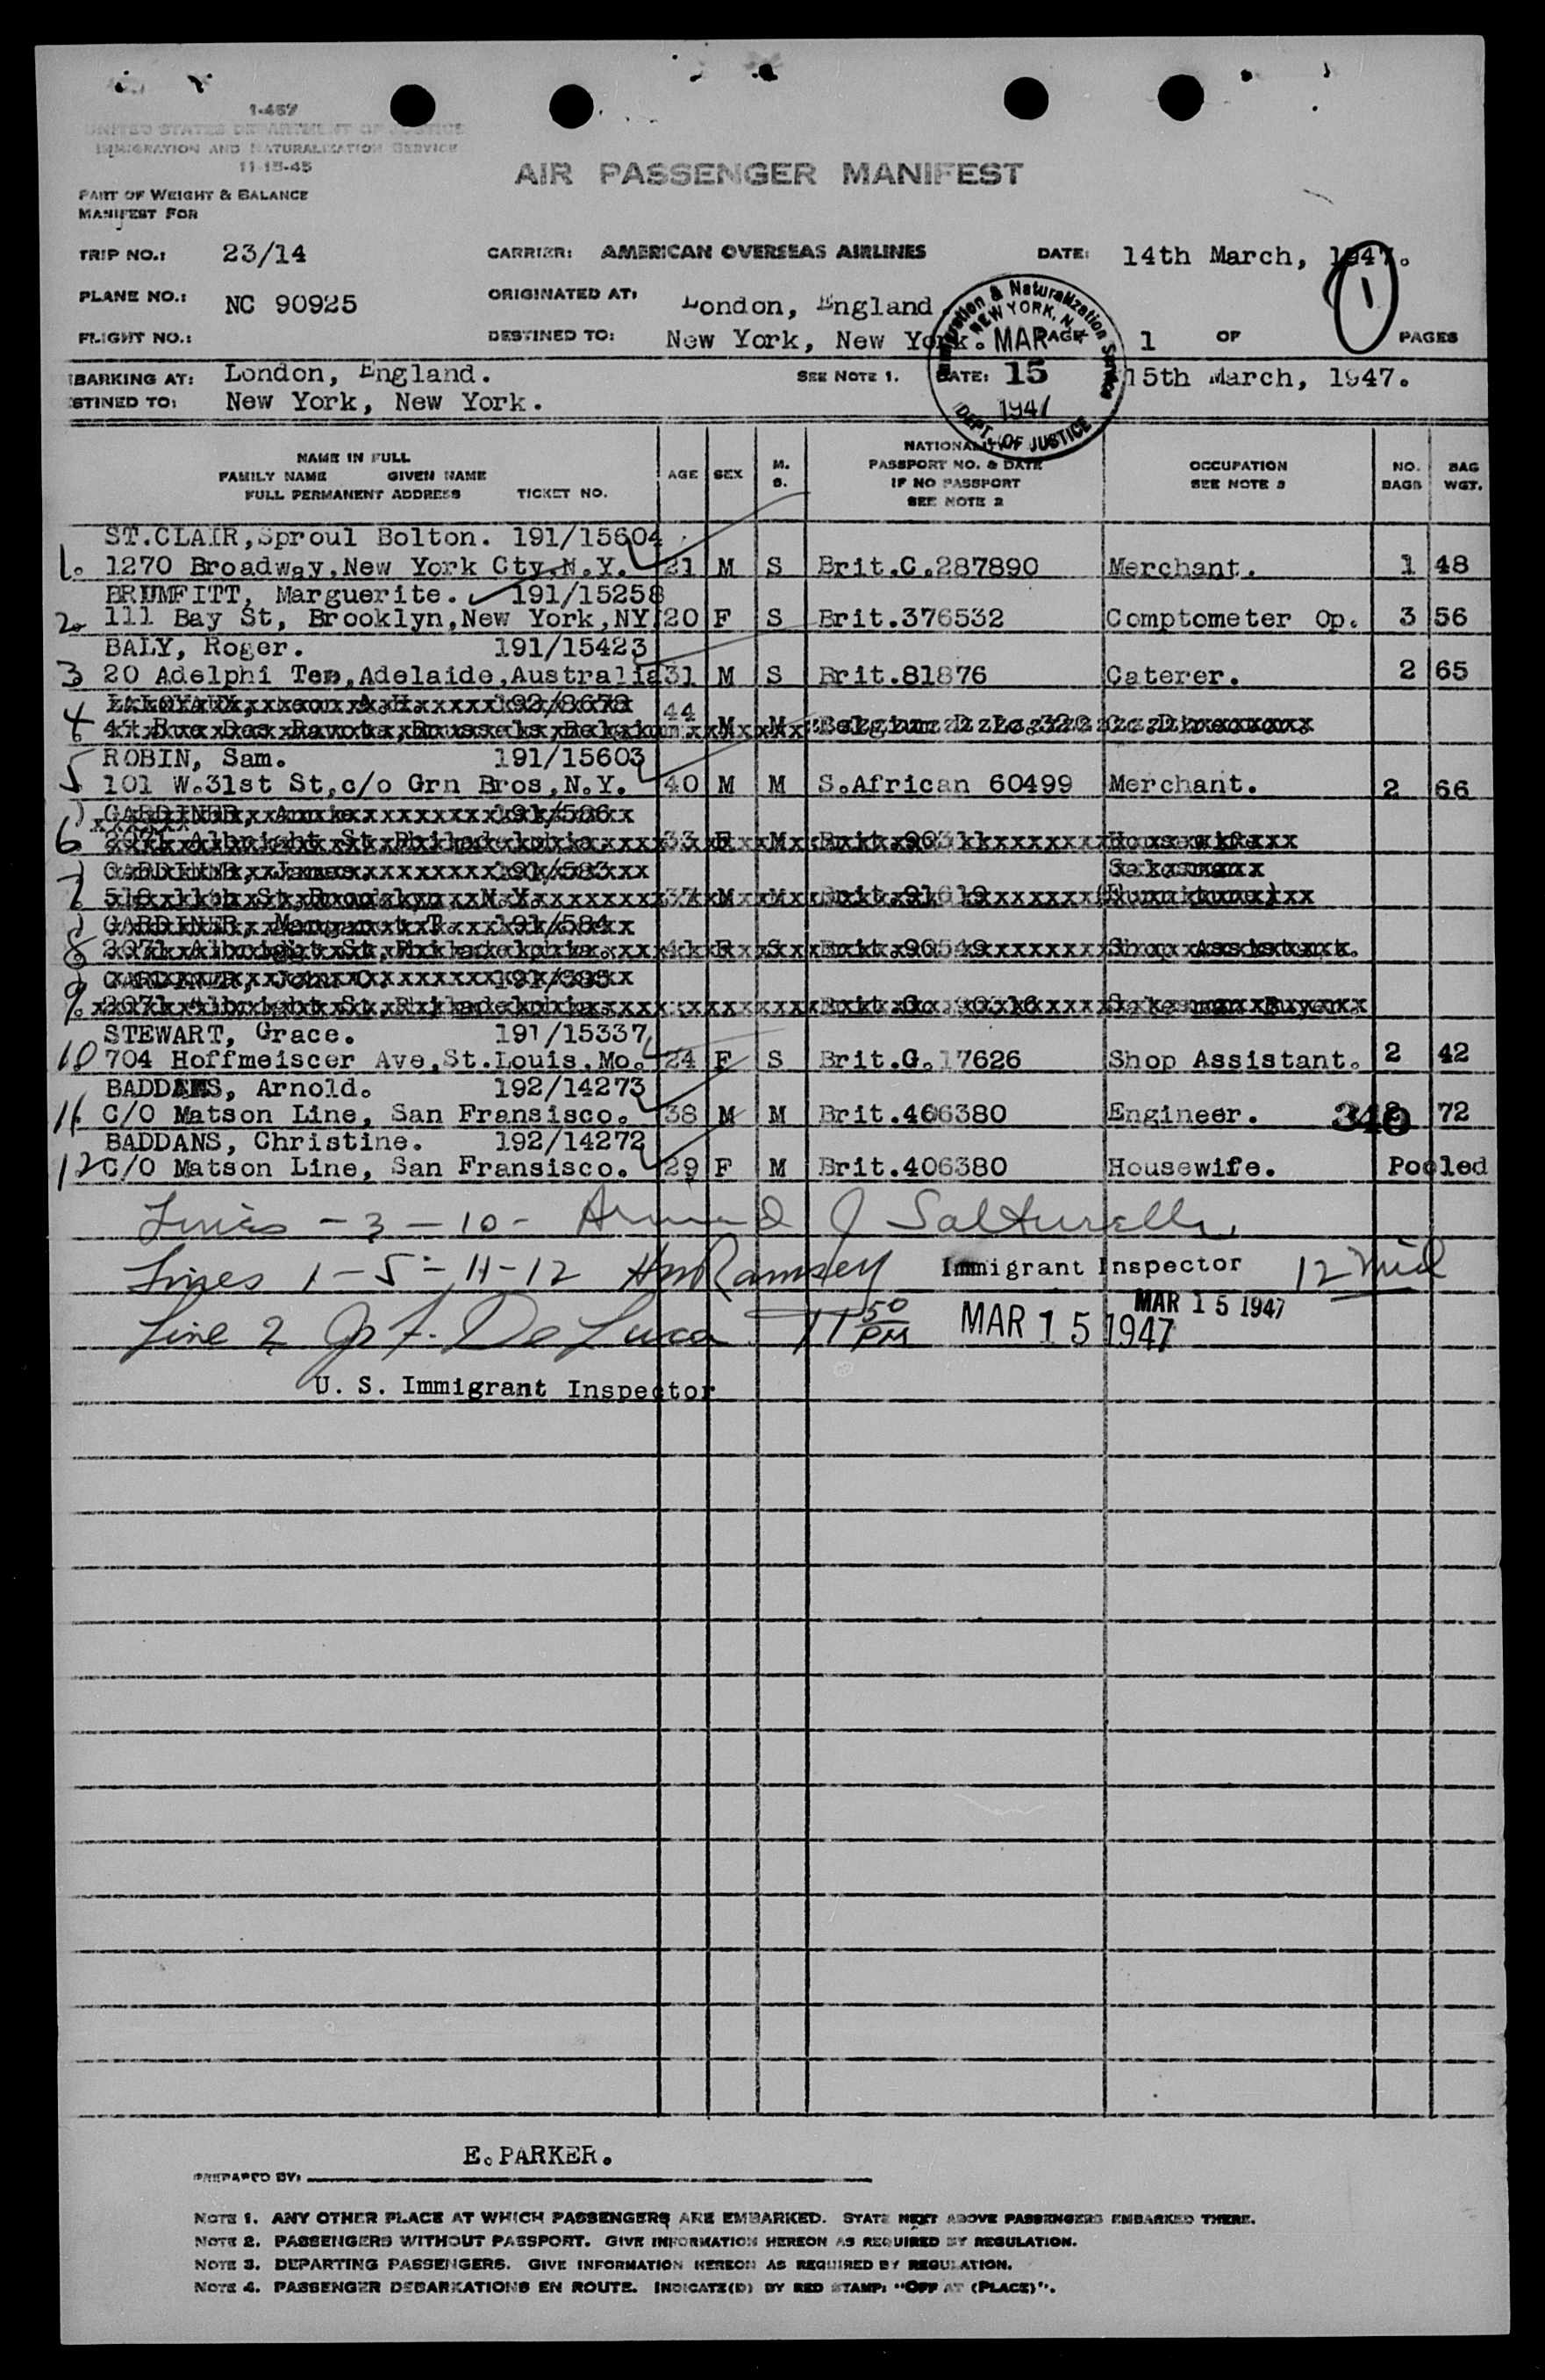 1-457
UNITED STATES DEPARTMENT OF JUSTICE
IMMIGRATION AND NATURALIZATION SERVICE
11-15-45
AIR PASSENGER MANIFEST
PART OF WEIGHT & BALANCE
MANIFEST FOR
TRIP NO.: 23/14 CARRIER: AMERICAN OVERSEAS AIRLINES DATE: 14th March, 1947.
1
PLANE NO.: NC 90925 ORIGINATED AT: London, England
FLIGHT NO.: DESTINED TO: New York, New York. PAGE 1 OF PAGES
Immigration & Naturalization Service
NEW YORK, N.Y.
MAR
15
1947
DEPT. OF JUSTICE
BARKING AT: London, England. SEE NOTE 1. DATE: 15th March, 1947.
STINED TO: New York, New York.
NAME IN FULL
FAMILY NAME GIVEN NAME
FULL PERMANENT ADDRESS TICKET NO.
AGE SEX M. S.
NATIONALITY
PASSPORT NO. & DATE
IF NO PASSPORT
SEE NOTE 2
OCCUPATION
SEE NOTE 3
NO. BAGS
BAG WGT.
ST.CLAIR,Sproul Bolton. 191/15604
1. 1270 Broadway,New York Cty,N.Y. 21 M S Brit.C.287890 Merchant. 1 48
BRUMFITT, Marguerite. 191/15258
2. 111 Bay St, Brooklyn,New York,NY 20 F S Brit.376532 Comptometer Op. 3 56
BALY, Roger. 191/15423
3 20 Adelphi Ter,Adelaide,Australia 31 M S Brit.81876 Caterer. 2 65
192/8678
4. 44 M M
ROBIN, Sam. 191/15603
5 101 W.31st St,c/o Grn Bros,N.Y. 40 M M S.African 60499 Merchant. 2 66
GARDINER, Annie 191/586
6 Albright St, Philadelphia 33 F M Housewife
GARDINER, James. 191/583 Salesman
7 St, Brooklyn, N.Y. 37 M M (Furniture)
GARDINER, Margaret T. 191/584
8 2071 Albright St, Philadelphia. F S Shop Assistant.
GARDINER, John 191/585
9. 2071 Albright St, Philadelphia
STEWART, Grace. 191/15337
10 704 Hoffmeiscer Ave,St.Louis,Mo. 24 F S Brit.G.17626 Shop Assistant. 2 42
BADDANS, Arnold. 192/14273
11. C/O Matson Line, San Fransisco. 38 M M Brit.406380 Engineer. 349 72
BADDANS, Christine. 192/14272
12 C/O Matson Line, San Fransisco. 29 F M Brit.406380 Housewife. Pooled
Lines - 3 - 10 - Armand J Salturelli
Lines 1 - 5 - 11-12 HM Ramsey Immigrant Inspector 12 Mid
MAR 15 1947
Line 2 De Luca 11 50 PM MAR 15 1947
U. S. Immigrant Inspector
E.PARKER.
PREPARED BY:
NOTE 1. ANY OTHER PLACE AT WHICH PASSENGERS ARE EMBARKED. STATE NEXT ABOVE PASSENGERS EMBARKED THERE.
NOTE 2. PASSENGERS WITHOUT PASSPORT. GIVE INFORMATION HEREON AS REQUIRED BY REGULATION.
NOTE 3. DEPARTING PASSENGERS. GIVE INFORMATION HEREON AS REQUIRED BY REGULATION.
NOTE 4. PASSENGER DEBARKATIONS EN ROUTE. INDICATE(D) BY RED STAMP: "OFF AT (PLACE)".